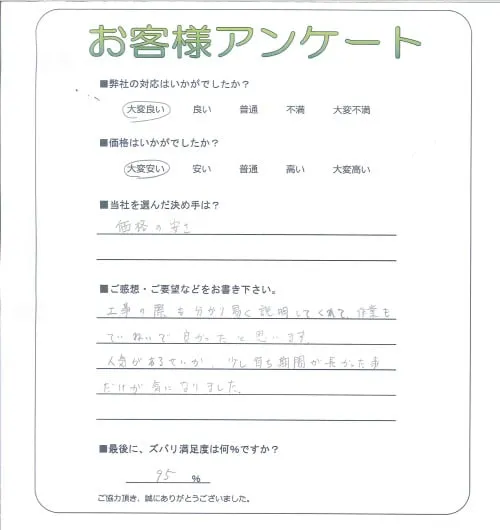 お客様アンケート
■弊社の対応はいかがでしたか？
大変良い 良い 普通 不満 大変不満
■価格はいかがでしたか？
大変安い 安い 普通 高い 大変高い
■当社を選んだ決め手は？
価格の安さ
■ご感想・ご要望などをお書き下さい。
工事の際も分かり易く説明してくれて、作業も
ていねいで良かったと思います。
人気があるせいか、少し待ち期間が長かった事
だけが気になりました。
■最後に、ズバリ満足度は何％ですか？
95 %
ご協力頂き、誠にありがとうございました。